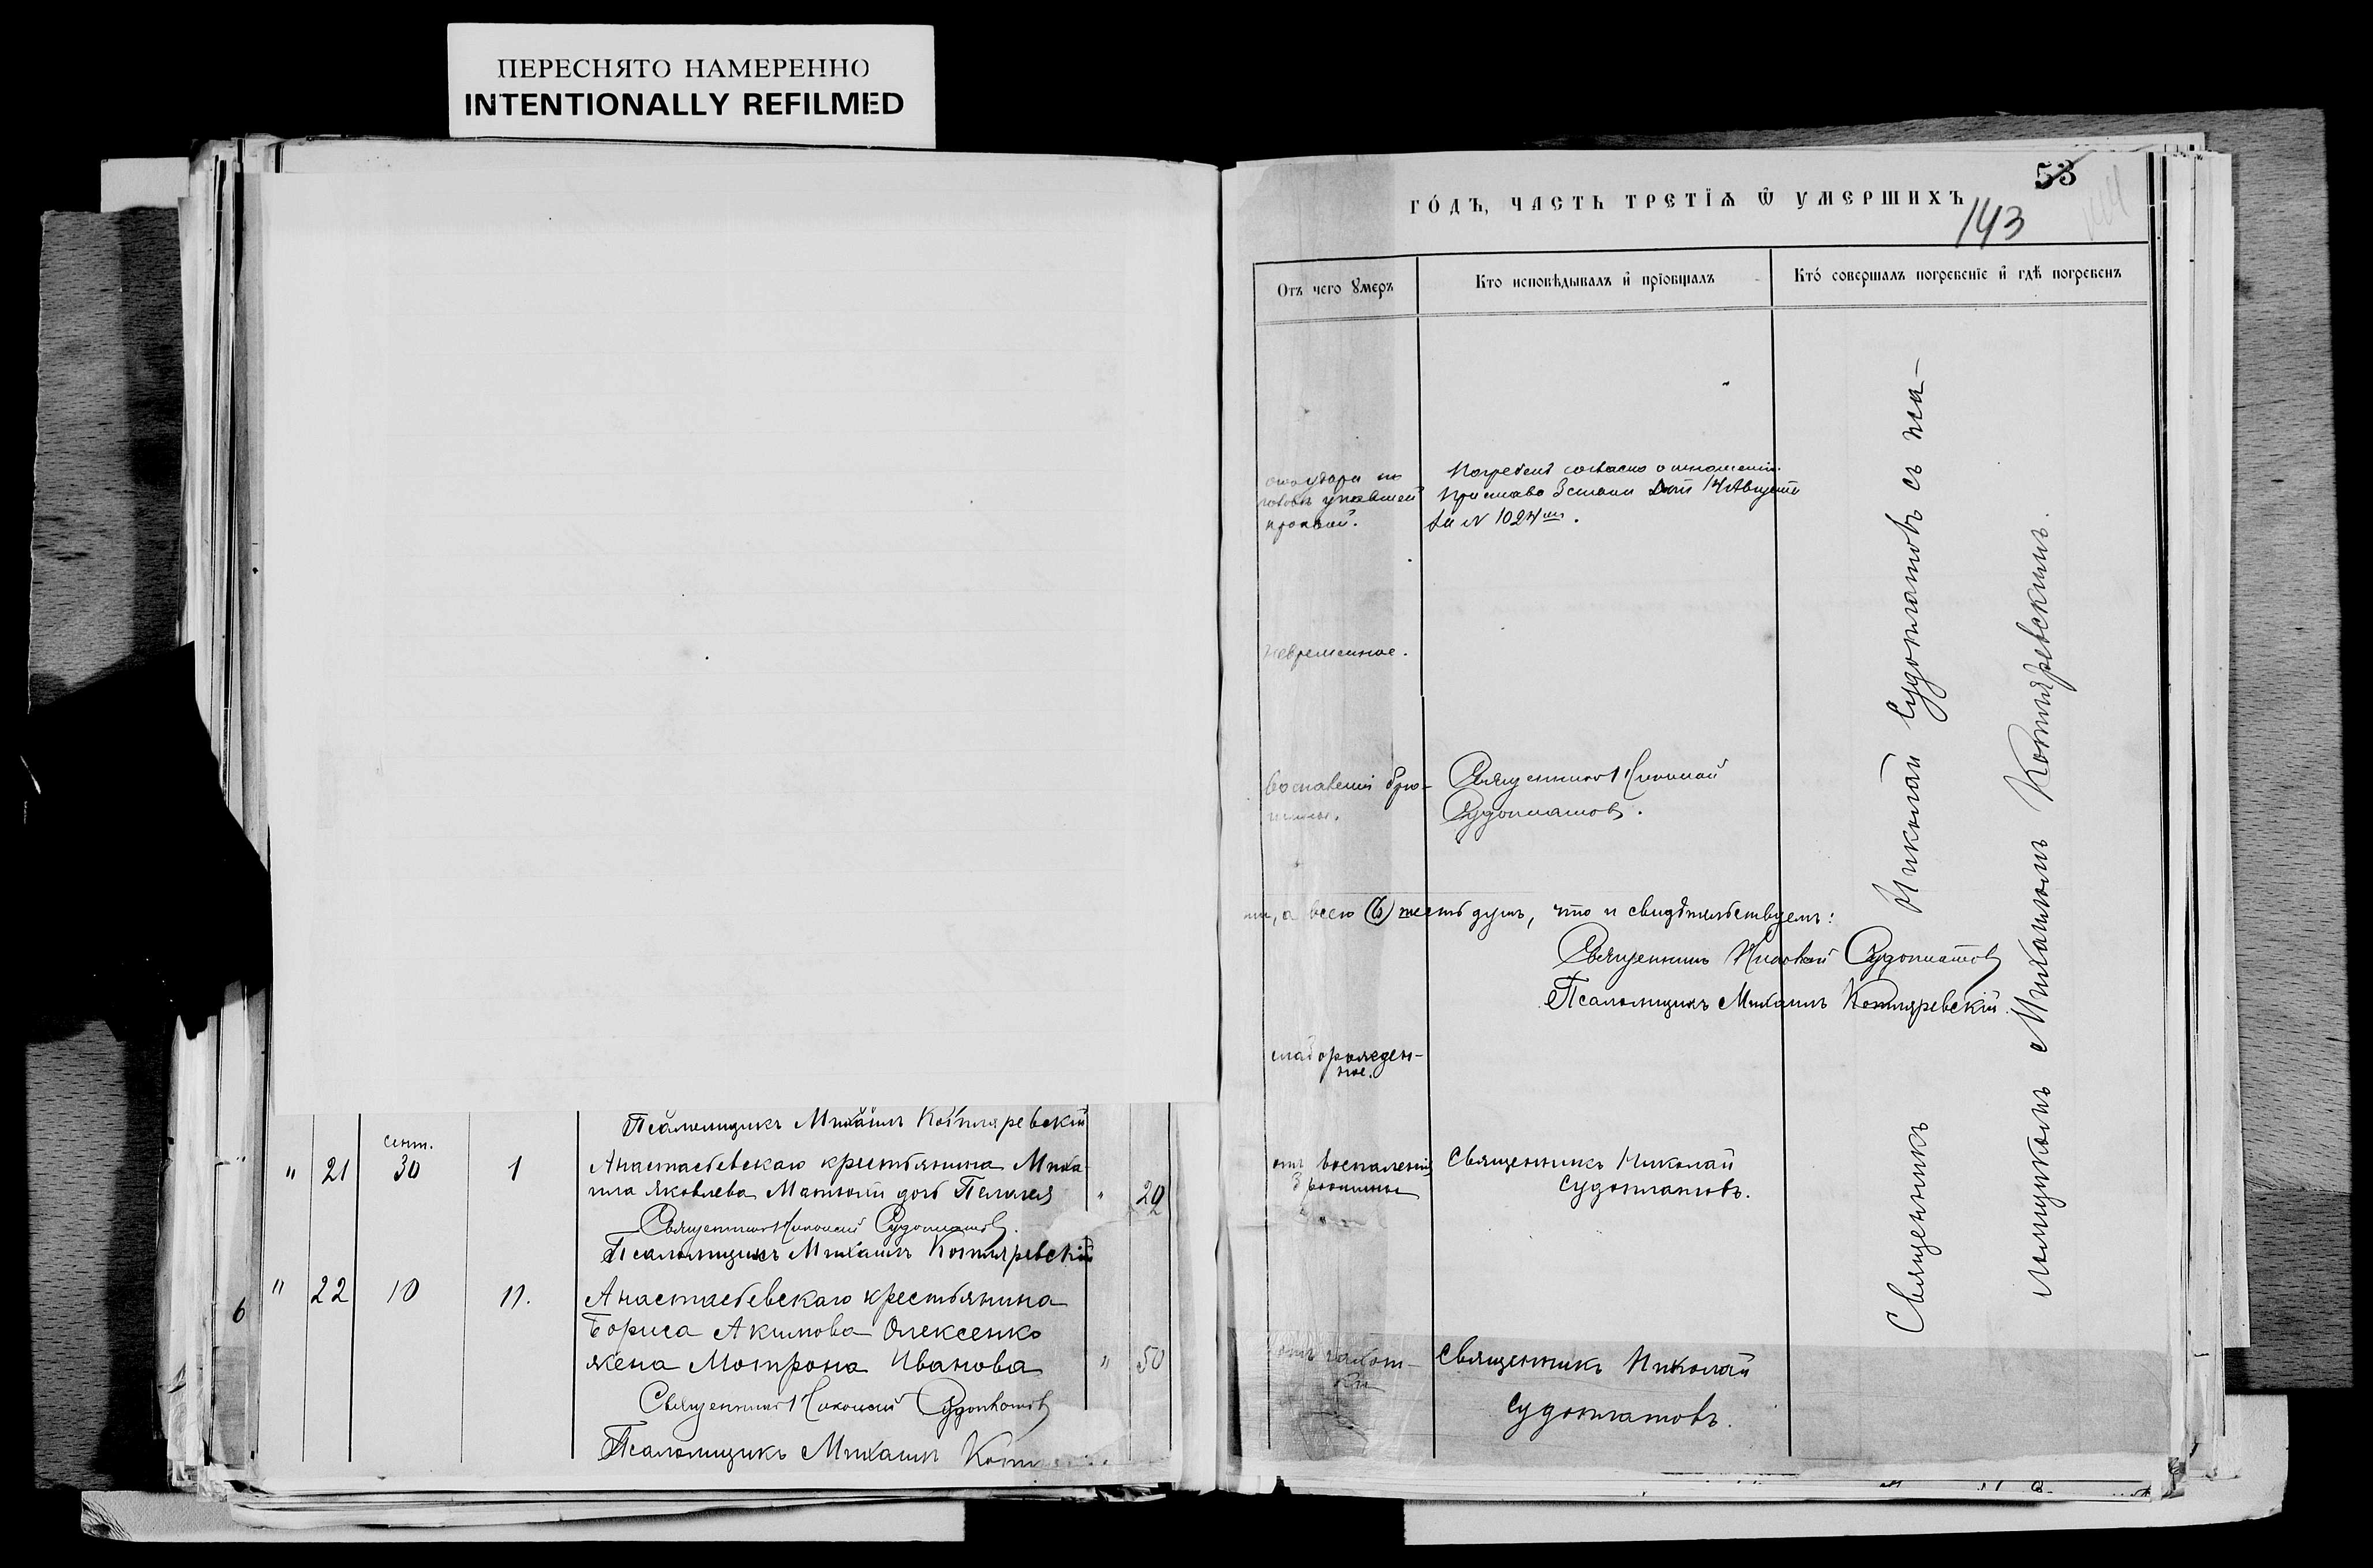 ПЕРЕСНЯТО НАМЕРЕННО
INTENTIONALLY REFILMED
53
ГО́ДЪ, ЧАСТЬ ТРЕТЇѦ Ѿ УМЕРШИХЪ
143
144
Отъ чего ѹмеръ
Кто исповѣдывалъ и҆ прїобщалъ
Кто́ совершалъ погребенїе и҆ гдѣ погребенъ
Псаломщикъ Михаилъ Котляревскій
" 21
сент.
30
1
Анастасіевскаго крестьянина Миха-
ила Яковлева дочь Пелагея
" 20
Священникъ Николай Судоплатовъ.
Псаломщикъ Михаилъ Котляревскій
6
" 22
10
11.
Анастасіевскаго крестьянина
Бориса Акимова Олексенко
жена Мотрона Иванова
" 50
Священникъ Николай Судоплатовъ
Псаломщикъ Михаилъ
отъ удара по
головѣ упавшей
Погребенъ согласно отношенія
Пристава 3 стана 14 Августа
за № 1024
невременное.
воспаленія брю-
Священникъ Николай
Судоплатовъ.
а всего (6) шесть душъ, что и свидѣтельствуемъ:
Священникъ Николай Судоплатовъ
Псаломщикъ Михаилъ Котляревскій.
слаборожден-
ное.
отъ воспаленія
Священникъ Николай
Судоплатовъ.
отъ чахот-
ки
Священникъ Николай
Судоплатовъ.
Священникъ Николай Судоплатовъ съ пса-
ломщикомъ Михаиломъ Котляревскимъ.